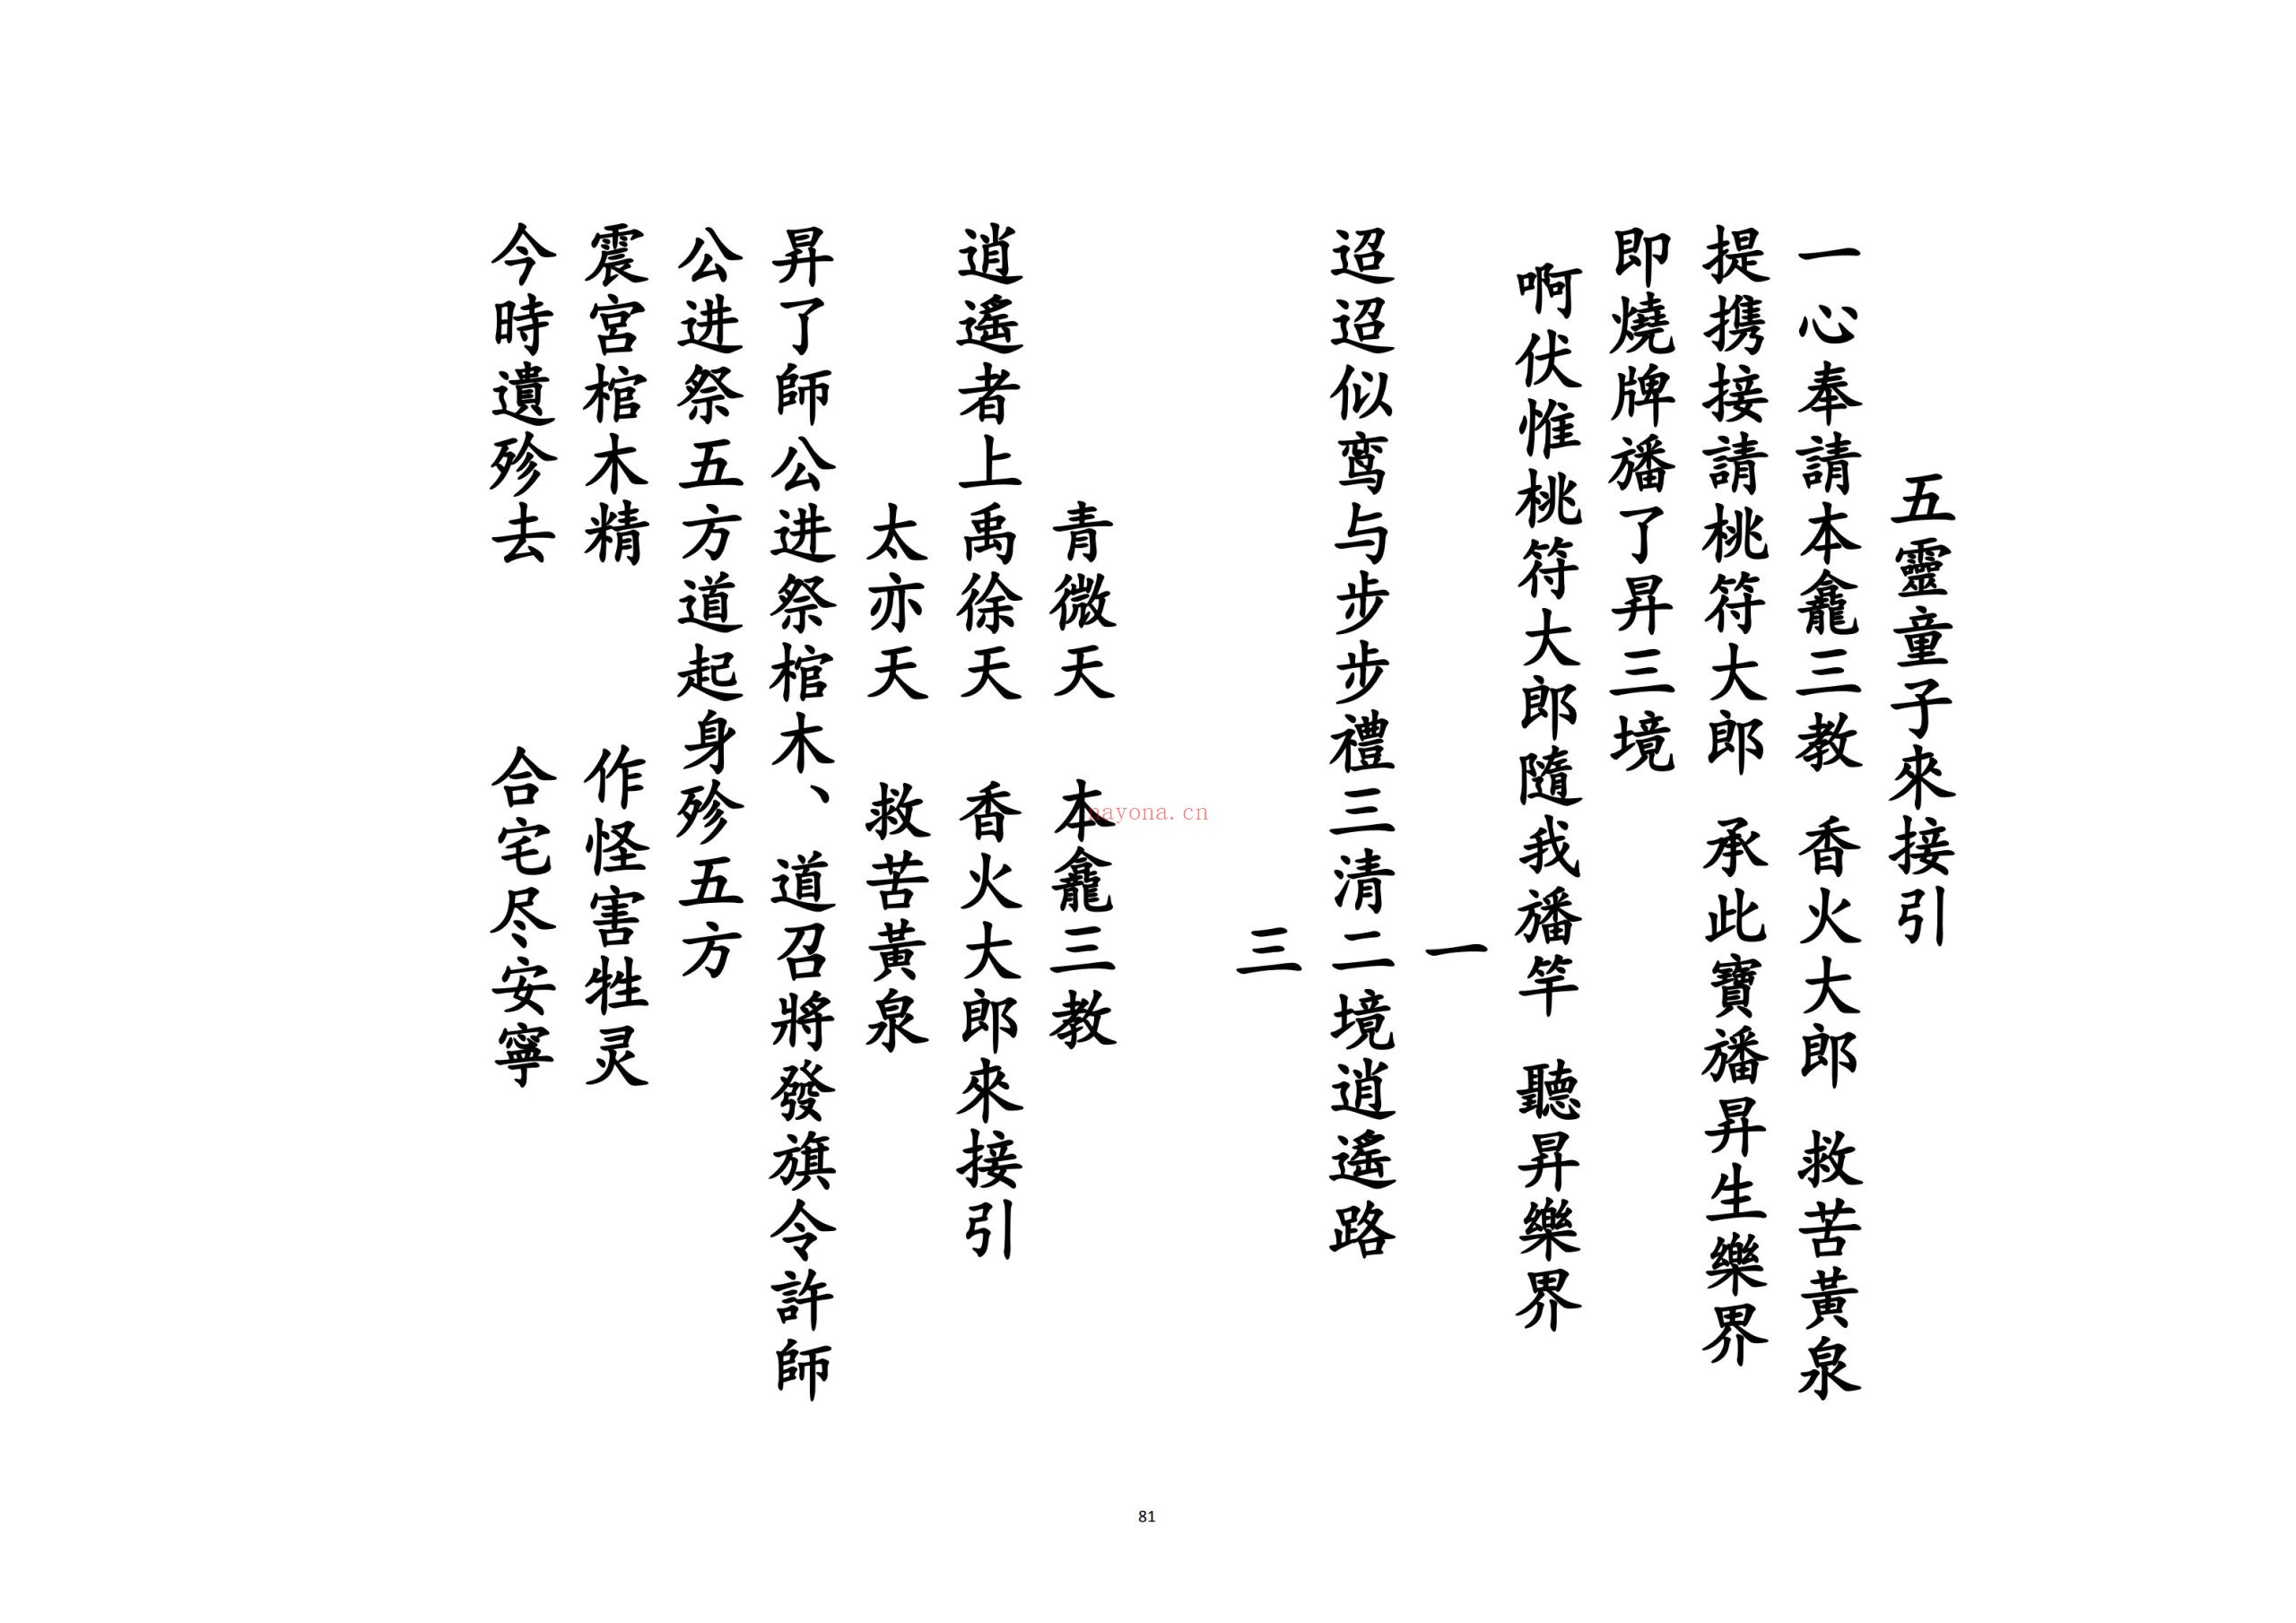 五靈童子來接引
一心奉請本龕三教　香火大郎　救苦黃泉
提携接請桃符大郎　承此寶旛昇生樂界
即燒牌旛了昇三境
啊伏惟桃符大郎隨我旛竿　聽昇樂界
一
迢迢似鸾与步步禮三清二境逍遙路
三
青微天　本龕三教
逍遙者上禹徐天　香火大郎來接引
太亦天　救苦黃泉
昇了師公进祭棺木、道召將發旗令許師
公进祭五方道起身殄五方
震宮棺木精　作怪害牲灵
今時遺殄去　合宅尽安寧
nayona.cn
81